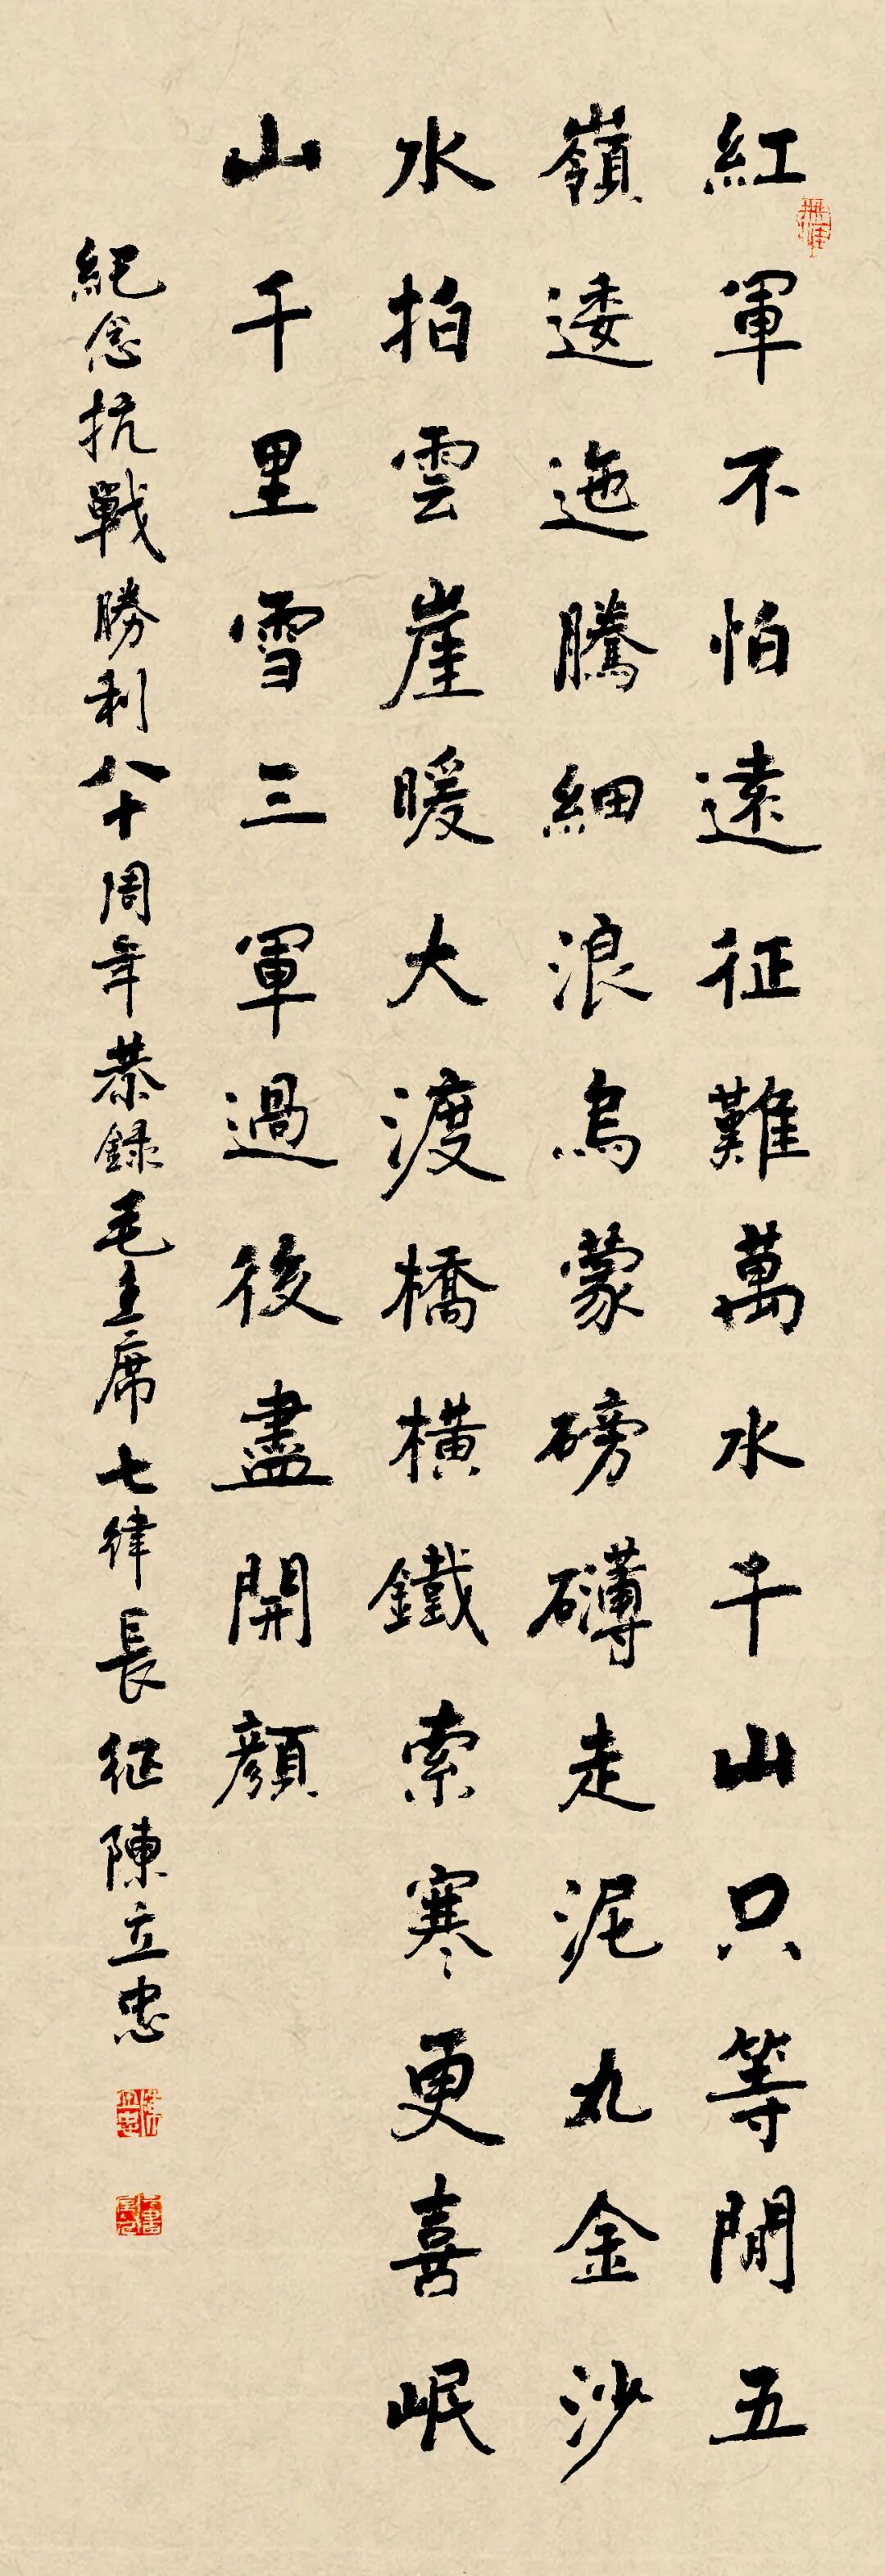 紅軍不怕遠征難萬水千山只等閒五
嶺逶迤騰細浪烏蒙磅礴走泥丸金沙
水拍雲崖暖大渡橋橫鐵索寒更喜岷
山千里雪三軍過後盡開顏
紀念抗戰勝利八十周年恭録毛主席七律長征陳立忠